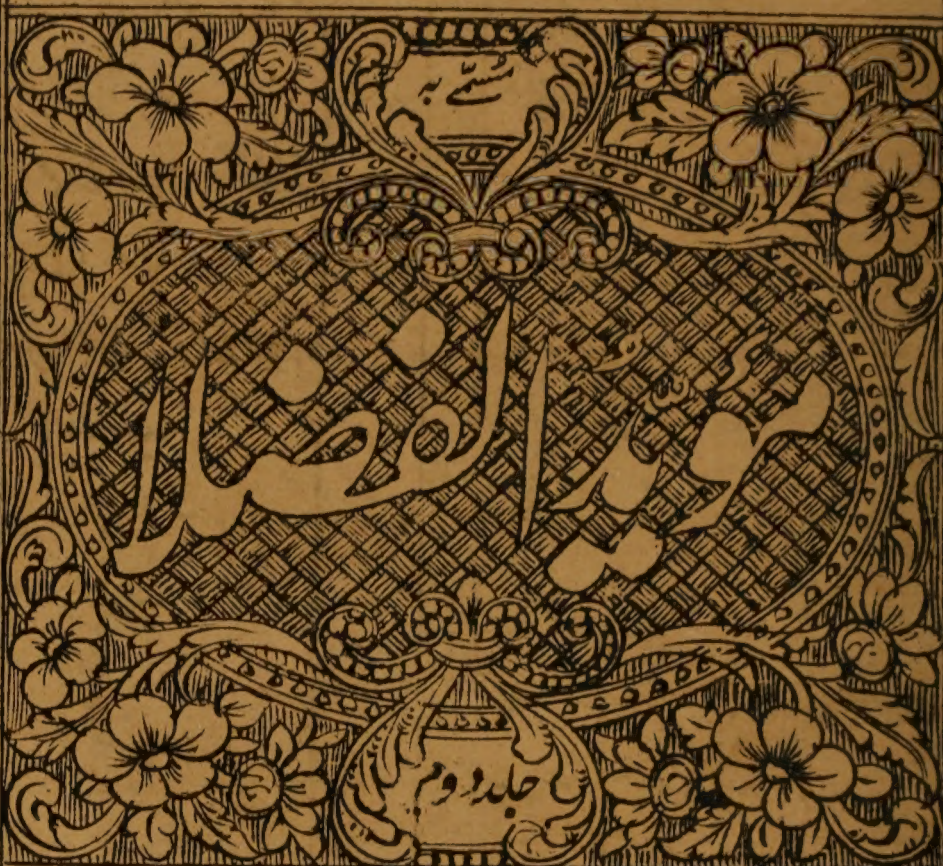 مسمّے به
مؤیّد الفضلا
جلد دوم